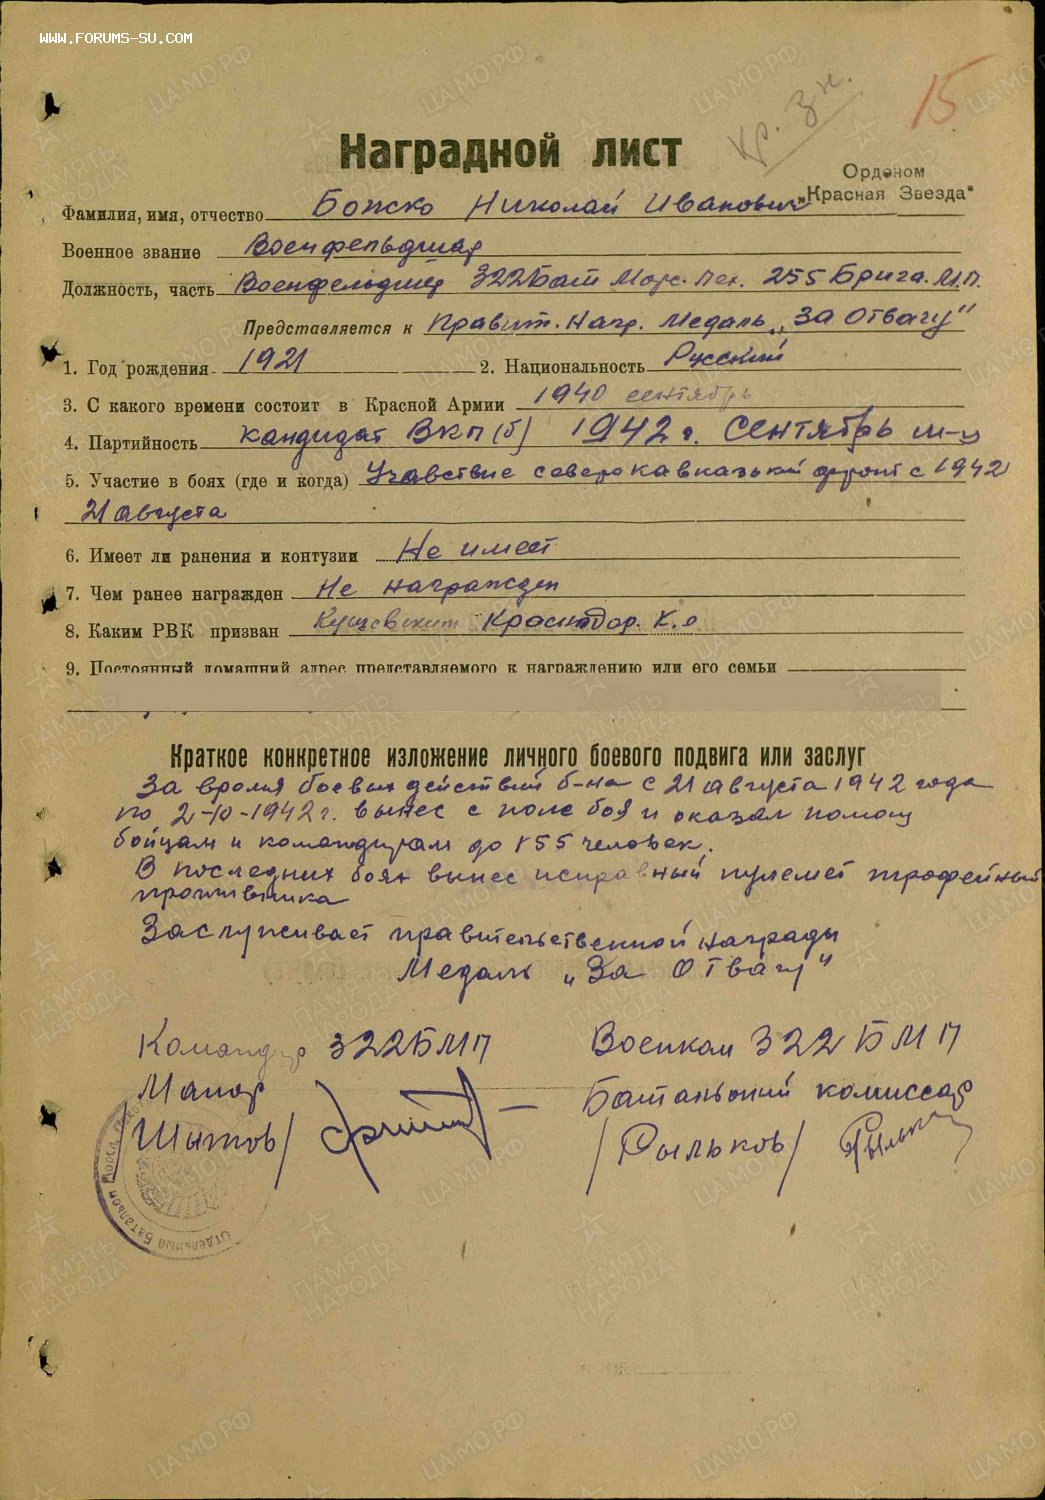 www.forums-su.com
15
Кр. Зн.
Наградной лист
Орденом
„Красная Звезда“
Фамилия, имя, отчество Божко Николай Иванович
Военное звание Военфельдшер
Должность, часть Военфельдшер 322 Бат Морс. пех. 255 Брига. М.П.
Представляется к Правит. Нагр. Медаль „За отвагу“
1. Год рождения 1921 2. Национальность Русский
3. С какого времени состоит в Красной Армии 1940 сентябрь
4. Партийность кандидат ВКП(б) 1942 г. Сентябрь м-ц
5. Участие в боях (где и когда) Учавствие северокавказький фронт с 1942
21 августа
6. Имеет ли ранения и контузии Не имеет
7. Чем ранее награжден Не награжден
8. Каким РВК призван Кущевским Краснодар. К.
9. Постоянный домашний адрес представляемого к награждению или его семьи
Краткое конкретное изложение личного боевого подвига или заслуг
За время боевых действий б-на с 21 августа 1942 года
по 2-10-1942 г. вынес с поле боя и оказал помощ
бойцам и командирам до 155 человек.
В последних боях вынес исправный пулемет трофейный
противника
Заслуживает правительственной награды
Медаль „За Отвагу“
Командир 322 БМП Военком 322 БМП
Маиор Батальоный комиссар
/Шытов/ /Рыльков/
Отдельный Батальон Морск.
ПАМЯТЬ НАРОДА
ЦАМО РФ